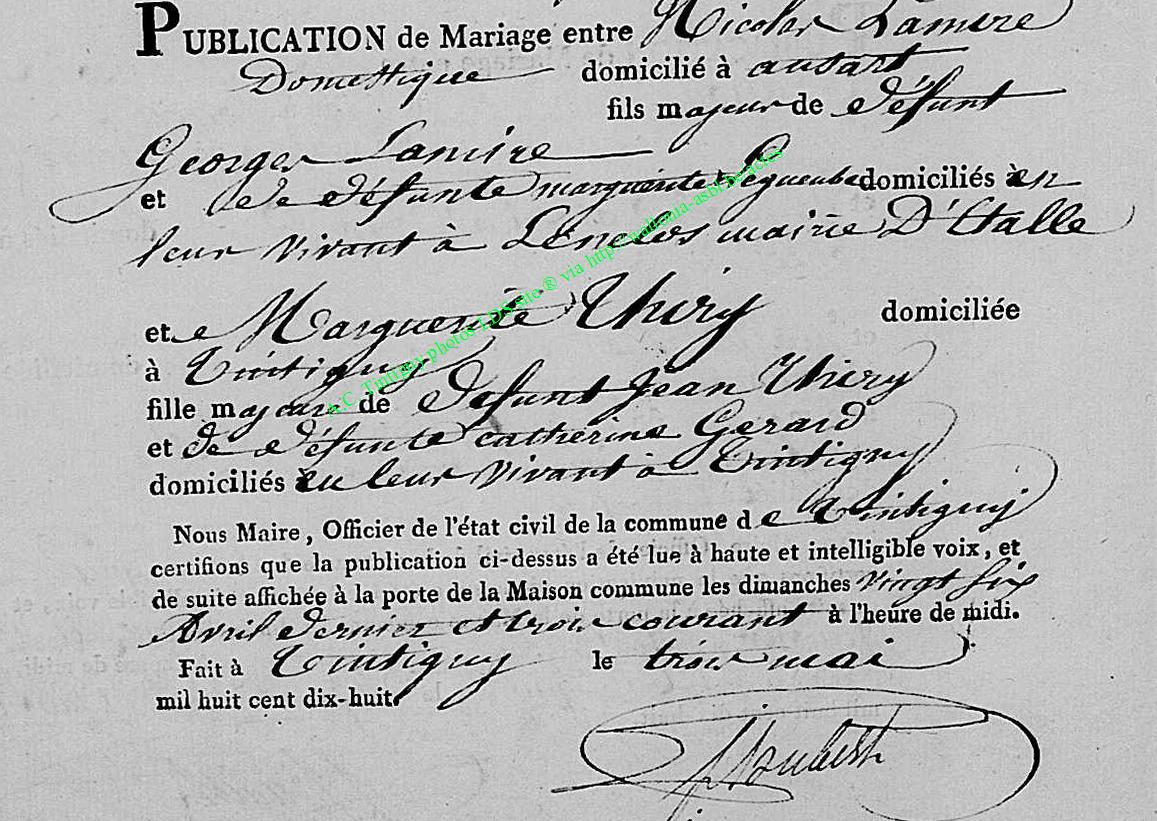 PUBLICATION de Mariage entre Nicolas Lamire
Domestique domicilié à ansart
fils majeur de défunt
Georges Lamire
et de défunte marguerite domiciliés en
leur vivant à mairie D'Etalle
et Marguerite Thiry domiciliée
à Tintigny
fille majeure de Défunt Jean Thiry
et de défunte catherine Gerard
domiciliés en leur vivant à Tintigny
Nous Maire, Officier de l'état civil de la commune de Tintigny
certifions que la publication ci-dessus a été lue à haute et intelligible voix, et
de suite affichée à la porte de la Maison commune les dimanches vingt six
Avril dernier et trois courant à l'heure de midi.
Fait à Tintigny le trois mai
mil huit cent dix-huit
A.C. Tintigny photos LDS site ® via http://wallonia-asbl.be/actes